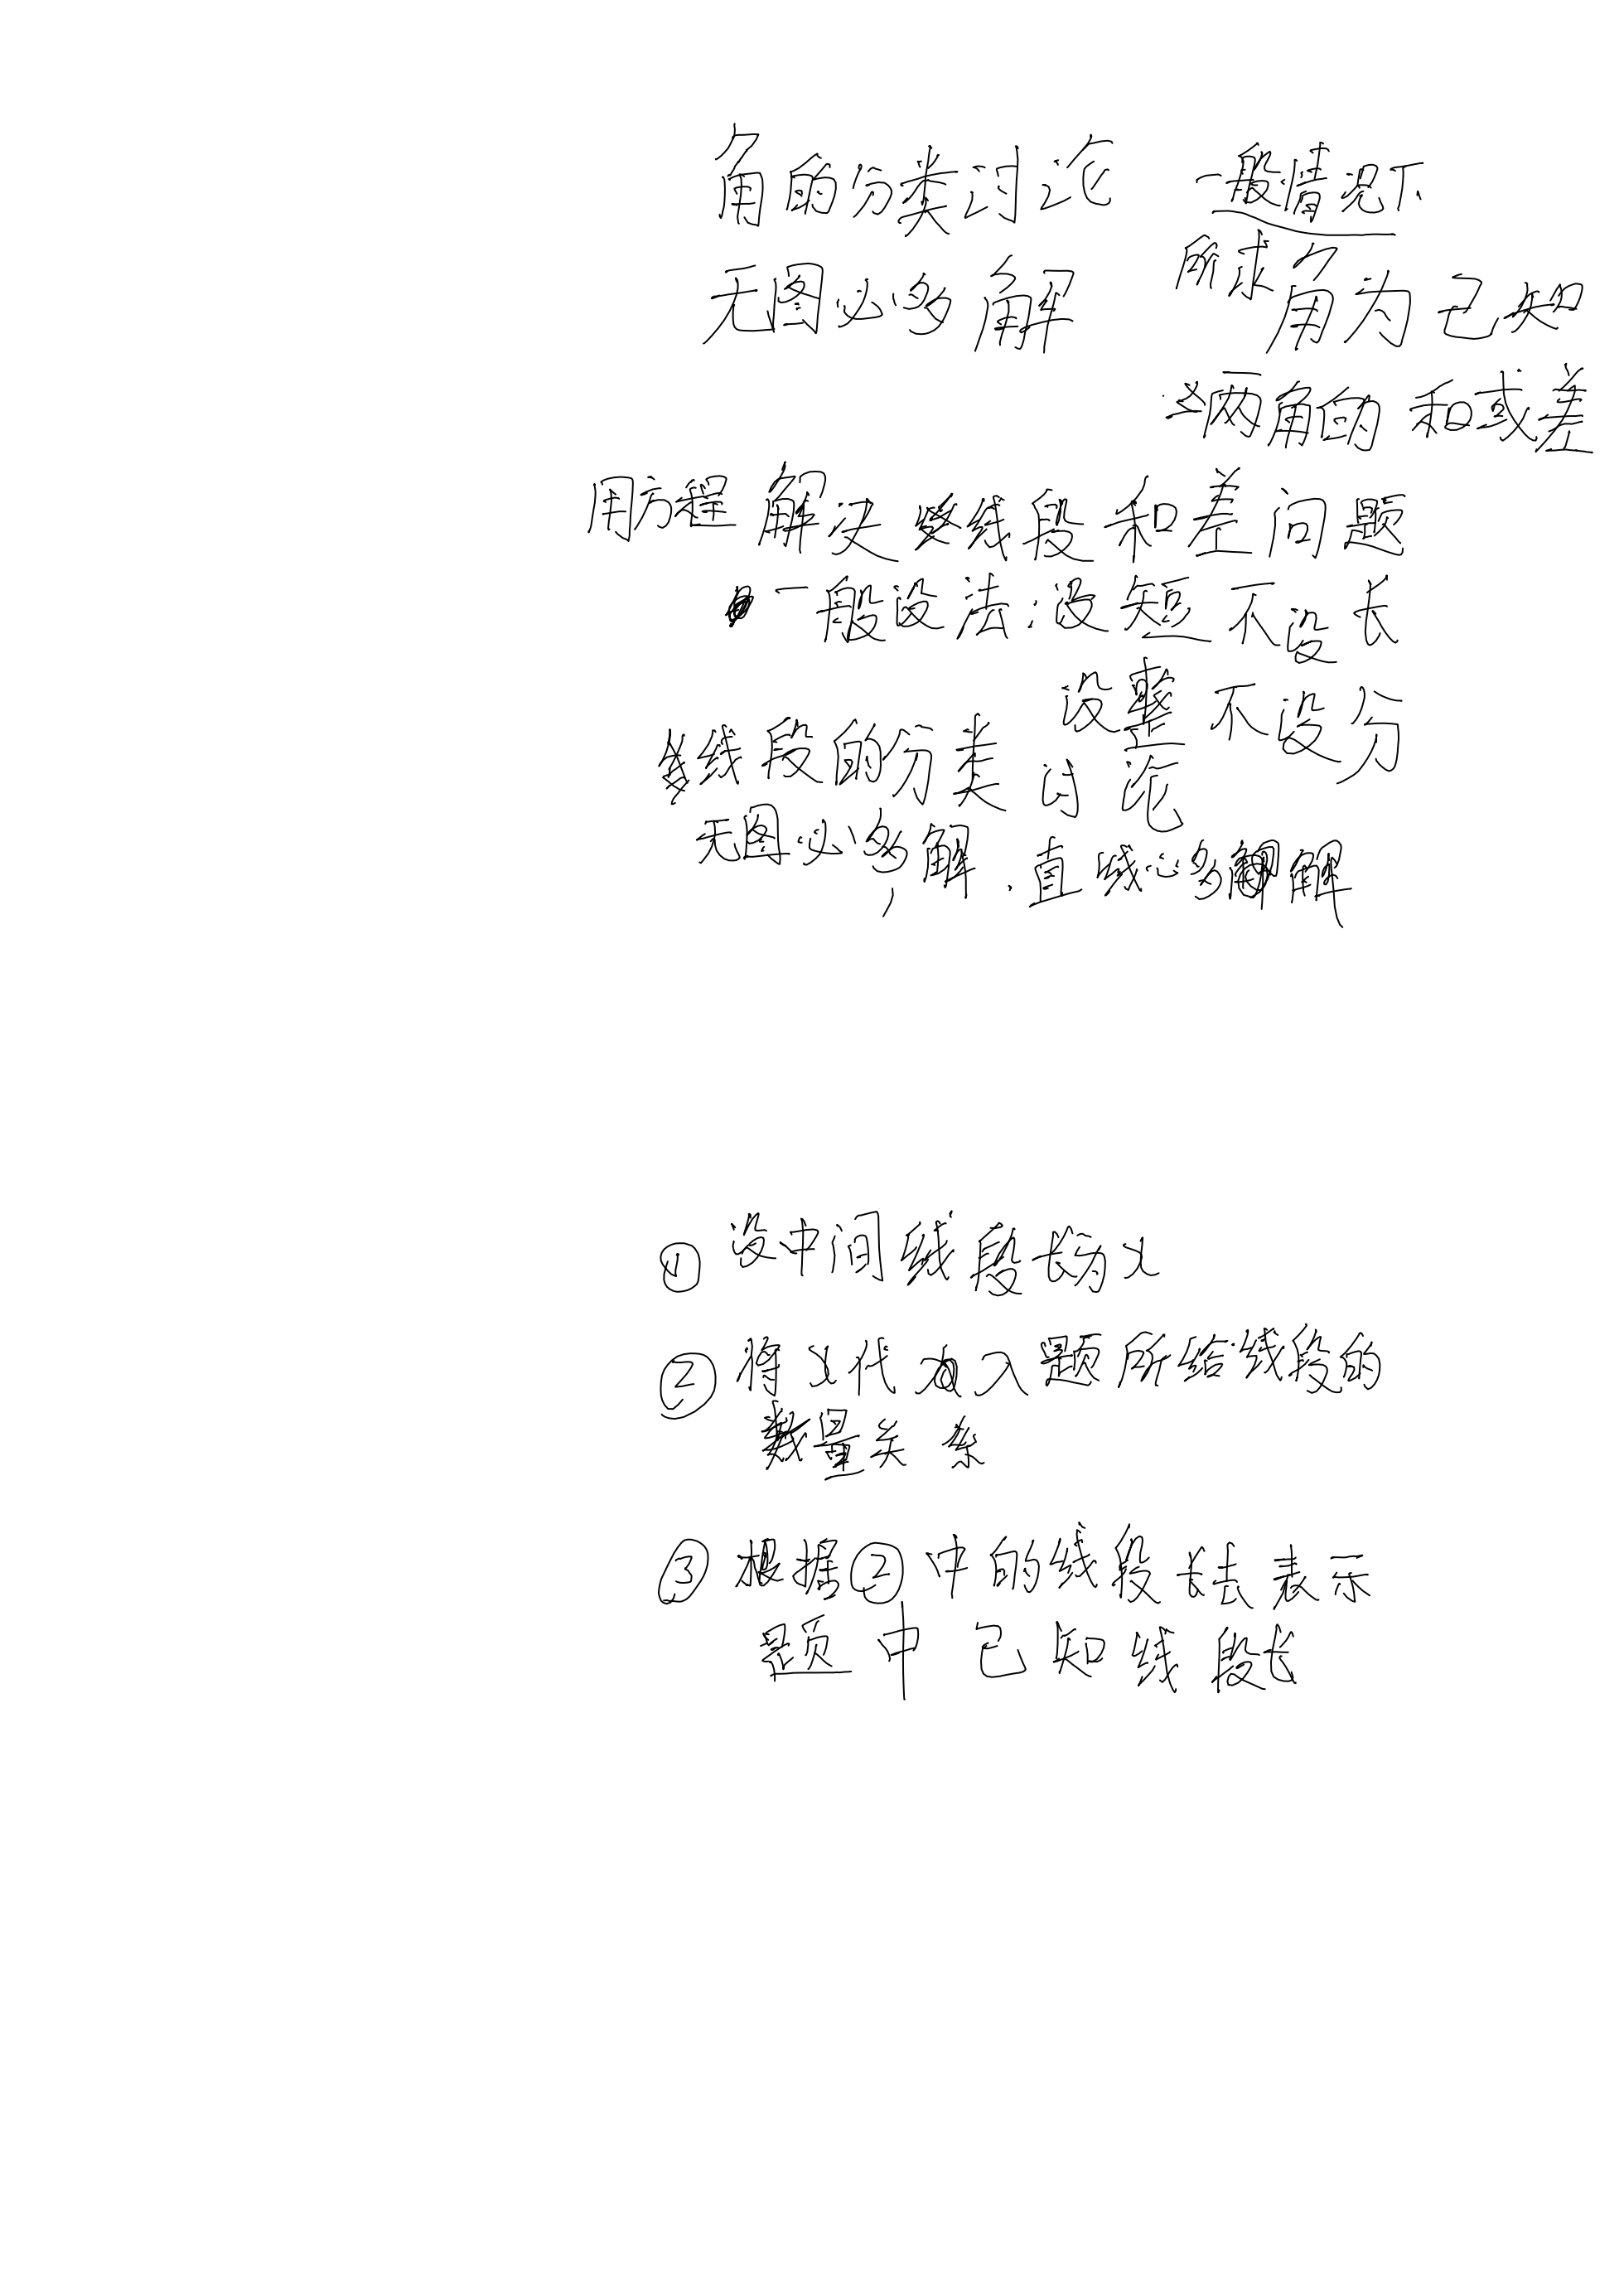 角的分类讨论 一般情况下
所求角为已知
无图必多解
两角的和或差
用方程解决线段和差问题
一般设法:设短不设长
设整不设分
线段的分类讨论
无图必多解,直线必多解
① 设中间线段长为x
② 将x代入题所给线段的
数量关系
③ 根据②中的线段长去表示
题中已知线段长